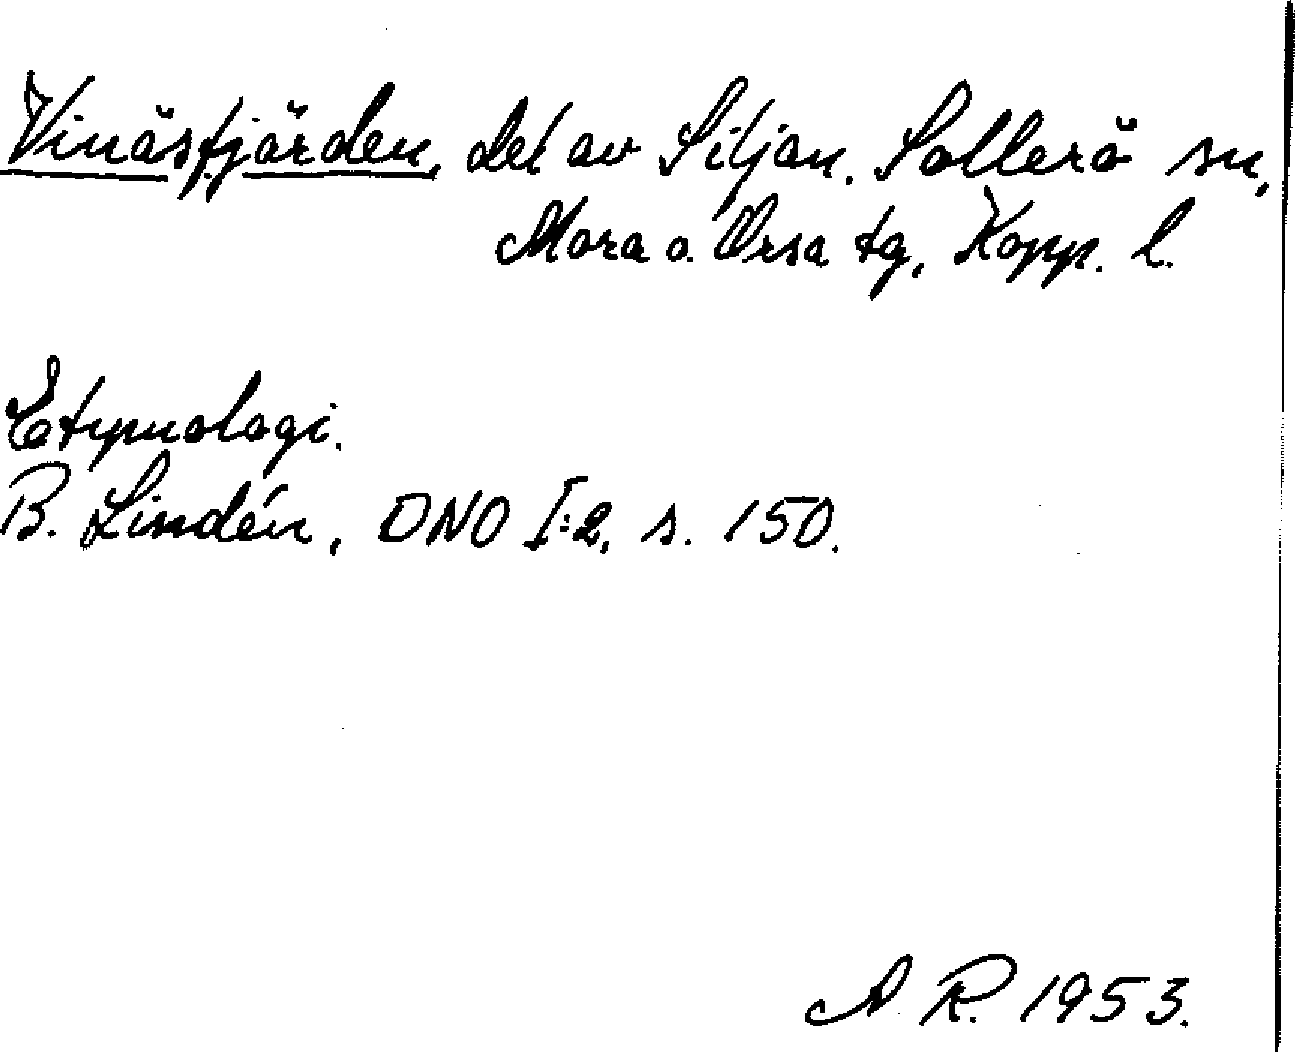 Vinäsfjärden, del av Siljan. Sollerö sn,
Mora o. Orsa tg, Kopp. l.
Etymologi.
B. Lindén, DNO I:2, s. 150.
A. R. 1953.